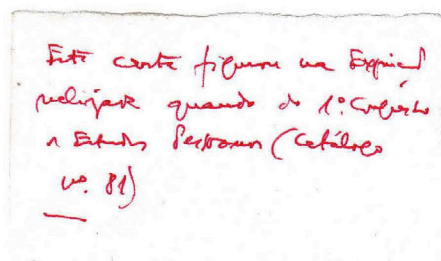 Esta carta figurou na Exposição
realizada quando do 1.º Congresso
de Estudos Pessoanos (Catálogo
nº. 81)